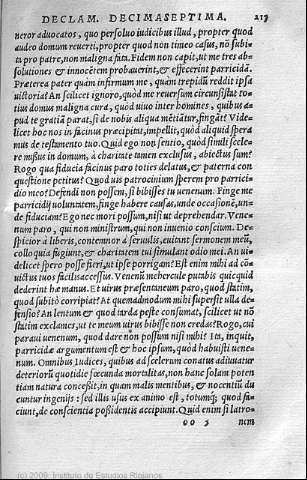 DECLAM. DECIMASEPTIMA. 219
neror advocatos, quo persoluo iudicibus illud, propter quod
audeo domum reuerti, propter quod non timeo casus, nō subi
tu pro patre, non maligna fata. Fidem non capit, ut me tres ab-
solutiones & innocētem probauerint, & effecerint parricidā.
Præterea pater quam infirmum me, quam trepidū reddit ipsa
uictoria! An scilicet ignoro, quòd me reuersum circumsistat to-
tius domus maligna cura, quòd uiuo inter homines, quibus a-
pud te gratiā parat, si de nobis aliqua mētiātur, fingāt? Vide-
licet hoc nos in facinus præcipitat, impellit, quòd aliquid spera
mus de testamento tuo. Quid ego non sentio, quòd simili scele-
re missus in domum, à charitate tamen exclusus, abiectus sum?
Rogo qua fiducia facinus paro toties delatus, & paterna con
questione petitus? Quod uis patrocinium sperem pro parrici-
dio meo? Defendi non possem, si bibisses tu uenenum. Finge me
parricidij uoluntatem, finge habere causas, unde occasionē, un-
de fiduciam? Ego nec mori possum, nisi ut deprehendar. Vene-
num paro, qui non ministrum, qui non inuenio conscium. De-
spicior à liberis, contemnor à seruulis, euitant sermonem meū,
colloquia fugiunt, & charitatem tui simulant odio mei. An ui-
delicet spero posse fieri, ut ipse porrigam? Est enim mihi ad cō-
uictus tuos facilis accessus. Venenū mehercule putabis quicquid
dederint hæ manus. Et uirus præsentaneum paro, quod statim,
quod subitò corripiat? At quemadmodum mihi superfit ulla de-
fensio? An lentum & quod tarda peste consumat, scilicet ut nō
statim exclames, ut te meum uirus bibisse non credas? Rogo, cui
paraui uenenum, quod dare non possum nisi mihi? Ita, inquit,
parricidæ argumentum est & hoc ipsum, quòd habuisti uene-
num. Omnibus Iudices, quibus ad scelerum conatus adiuuatur
deteriorū quotidie fœcunda mortalitas, non hanc solam poten
tiam natura concessit, in quam malis mentibus, & nocentiū du
cuntur ingenijs: sed illis usus ex animo est, totumq́; quod fa-
ciunt, de conscientia possidentis accipiunt. Quid enim si latro-
oo 5 num
(c) 2009. Instituto de Estudios Riojanos